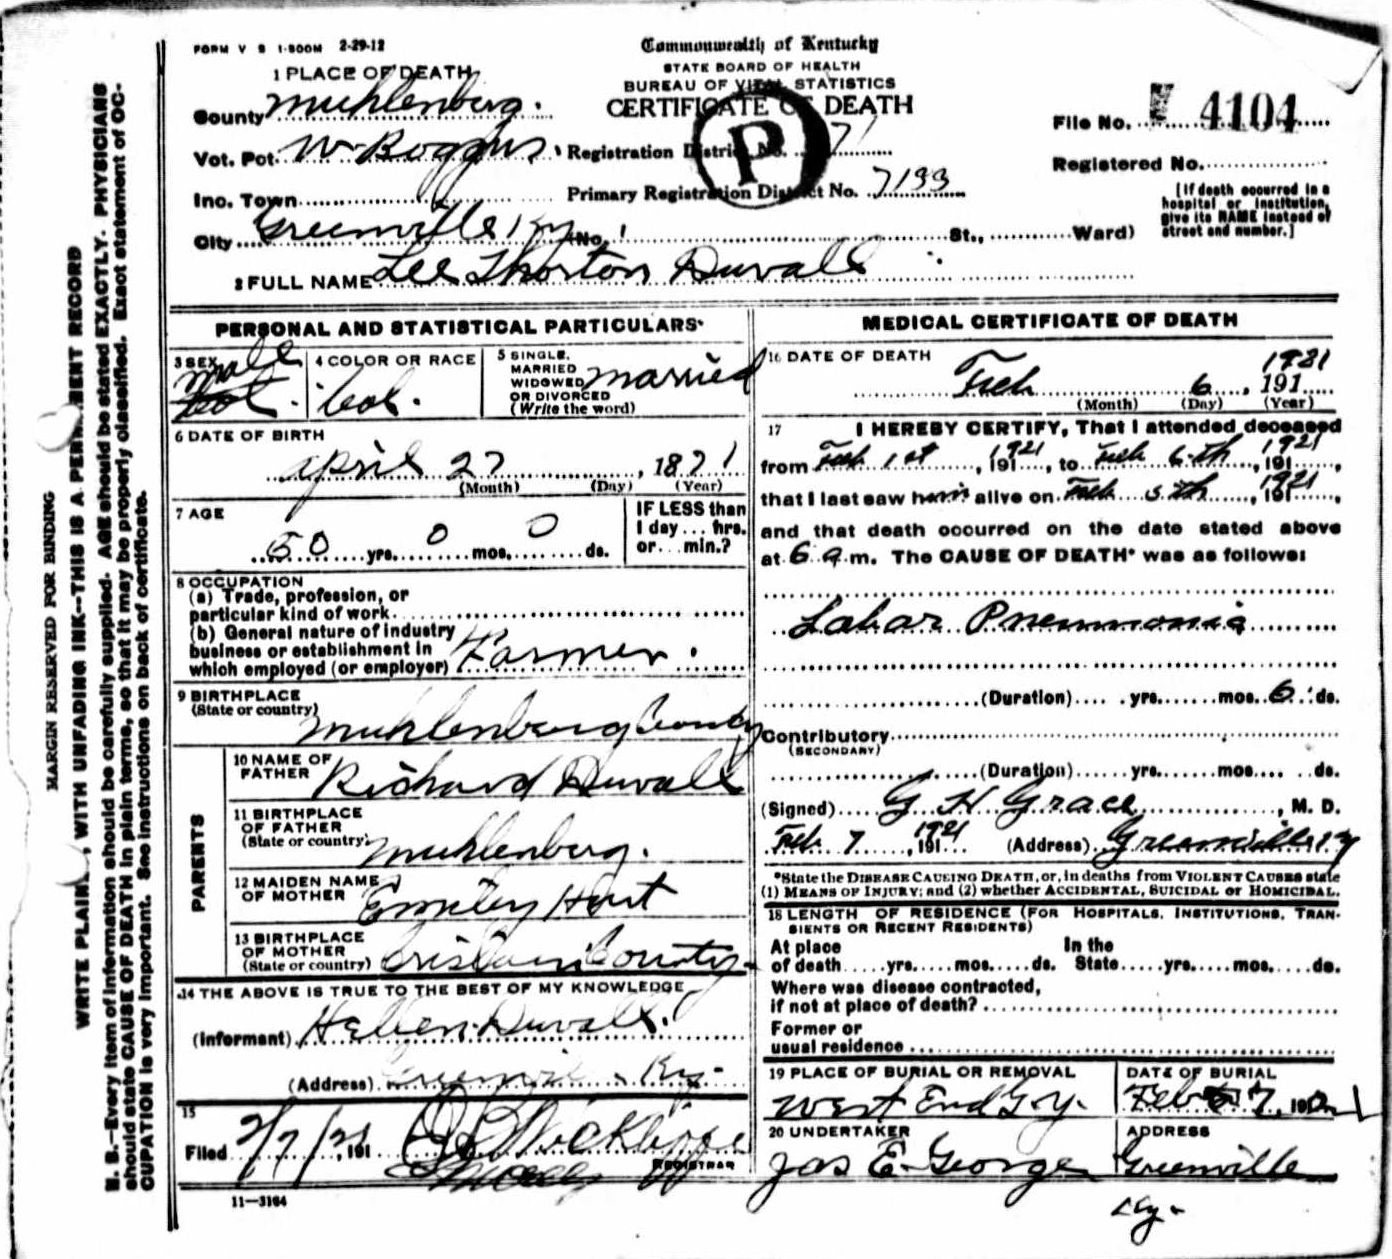 FORM V S 1-500M 2-29-12
Commonwealth of Kentucky
STATE BOARD OF HEALTH
BUREAU OF VITAL STATISTICS
CERTIFICATE OF DEATH
1 PLACE OF DEATH
County Muhlenberg.
Vot. Pct. W Boggus
Inc. Town
City Greenville Ky No.
St., Ward)
Registration District No. 71
Primary Registration District No. 7133
P
File No. 4104
Registered No.
[If death occurred in a
hospital or institution,
give its NAME instead of
street and number.]
2 FULL NAME Lee Thorton Duvall
PERSONAL AND STATISTICAL PARTICULARS
3 SEX male
Col.
4 COLOR OR RACE
Col.
5 SINGLE,
MARRIED
WIDOWED
OR DIVORCED
(Write the word)
married
6 DATE OF BIRTH
April 27, 1871
(Month) (Day) (Year)
7 AGE
50 yrs. 0 mos. 0 ds.
IF LESS than
1 day ... hrs.
or ... min.?
8 OCCUPATION
(a) Trade, profession, or
particular kind of work
(b) General nature of industry
business or establishment in
which employed (or employer) Farmer.
9 BIRTHPLACE
(State or country)
Muhlenberg County
PARENTS
10 NAME OF
FATHER Richard Duvall
11 BIRTHPLACE
OF FATHER
(State or country) Muhlenberg.
12 MAIDEN NAME
OF MOTHER Emiley Hart
13 BIRTHPLACE
OF MOTHER
(State or country) County
14 THE ABOVE IS TRUE TO THE BEST OF MY KNOWLEDGE
(Informant) Hellen Duvall.
(Address) Ky.
15
Filed 2/7/21, 191
REGISTRAR
11—3164
MEDICAL CERTIFICATE OF DEATH
16 DATE OF DEATH
Feb 6, 191 1921
(Month) (Day) (Year)
17 I HEREBY CERTIFY, That I attended deceased
from Feb 1st, 191 1921, to Feb 6th, 191 1921,
that I last saw him alive on Feb 5th, 191 1921,
and that death occurred on the date stated above
at 6 a m. The CAUSE OF DEATH* was as follows:
Lobar Pneumonia
(Duration) yrs. mos. 6 ds.
Contributory
(SECONDARY)
(Duration) yrs. mos. ds.
(Signed) G H Grace, M. D.
Feb 7, 191 1921 (Address) Greenville Ky
*State the DISEASE CAUSING DEATH, or, in deaths from VIOLENT CAUSES state
(1) MEANS OF INJURY; and (2) whether ACCIDENTAL, SUICIDAL or HOMICIDAL.
18 LENGTH OF RESIDENCE (FOR HOSPITALS, INSTITUTIONS, TRAN-
SIENTS OR RECENT RESIDENTS)
At place
of death yrs. mos. ds.
In the
State yrs. mos. ds.
Where was disease contracted,
if not at place of death?
Former or
usual residence
19 PLACE OF BURIAL OR REMOVAL
West End Gvy.
DATE OF BURIAL
Feb 7, 1921
20 UNDERTAKER
Jas E. George
ADDRESS
Greenville
Ky.
MARGIN RESERVED FOR BINDING
WRITE PLAINLY, WITH UNFADING INK--THIS IS A PERMANENT RECORD
N. B.—Every item of information should be carefully supplied. AGE should be stated EXACTLY. PHYSICIANS
should state CAUSE OF DEATH in plain terms, so that it may be properly classified. Exact statement of OC-
CUPATION is very important. See instructions on back of certificate.